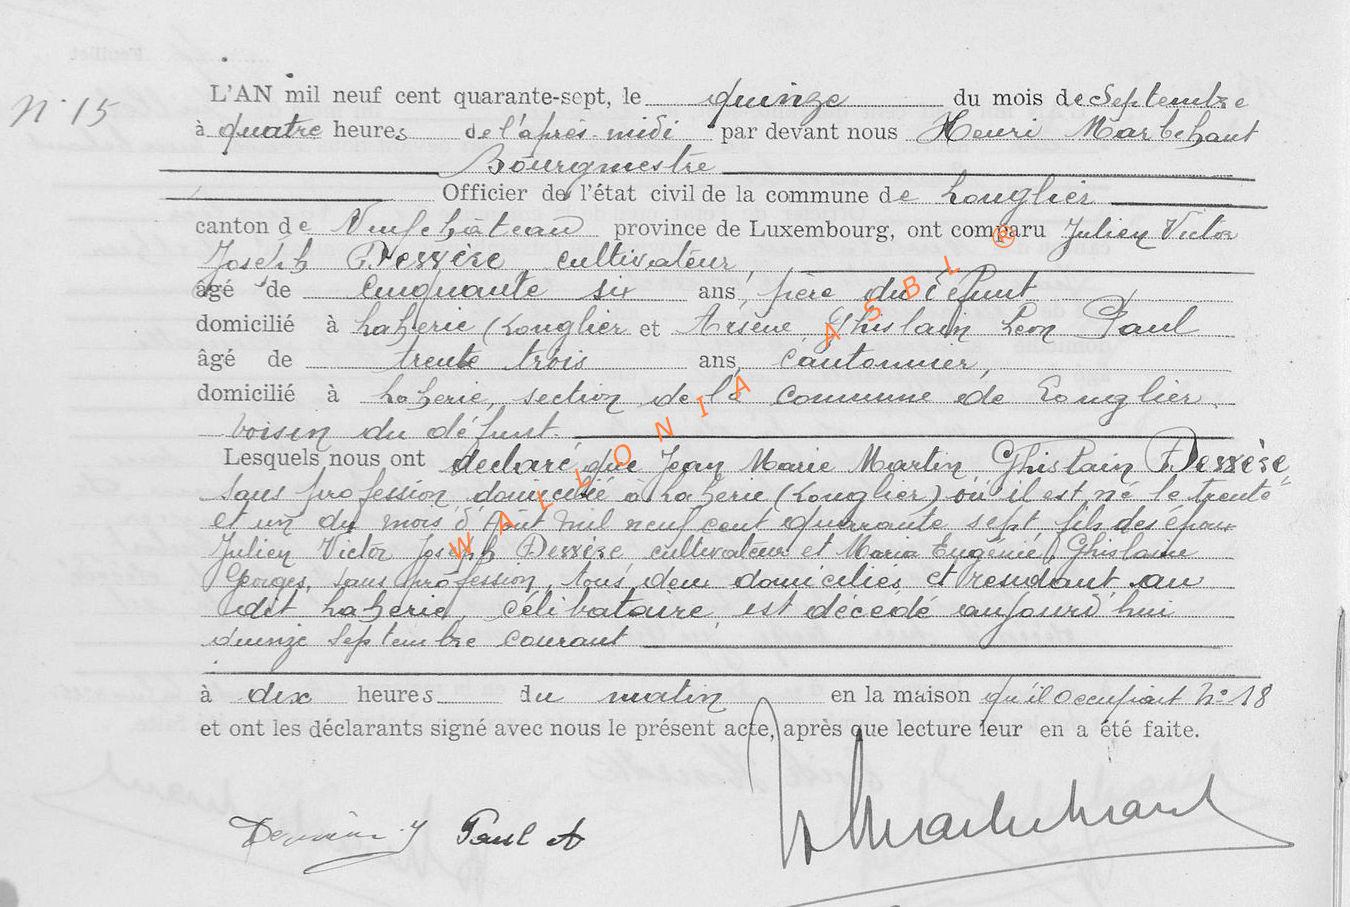 N° 15
L'AN mil neuf cent quarante-sept, le quinze du mois de Septembre
à quatre heures de l'après-midi par devant nous Henri Marbehant
Bourgmestre
Officier de l'état civil de la commune de Longlier
canton de Neufchateau province de Luxembourg, ont comparu Julien Victor
Joseph Dessère cultivateur,
âgé de cinquante six ans, père du défunt
domicilié à Laherie (Longlier et Arsène Ghislain Léon Paul
âgé de trente trois ans, cantonnier,
domicilié à Laherie, section de la commune de Longlier
voisin du défunt.
Lesquels nous ont déclaré que Jean Marie Martin Ghislain Dessère
sans profession domicilié à Laherie (Longlier) où il est né le trente
et un du mois d'Août mil neuf cent quarante sept, fils des époux
Julien Victor Joseph Dessère, cultivateur et Maria Eugénie Ghislaine
Georges, sans profession, tous deux domiciliés et résidant au
dit Laherie, célibataire, est décédé aujourd'hui
quinze septembre courant
à dix heures du matin en la maison qu'il occupait N° 18
et ont les déclarants signé avec nous le présent acte, après que lecture leur en a été faite.
Paul A
WALLONIA ASBL ®